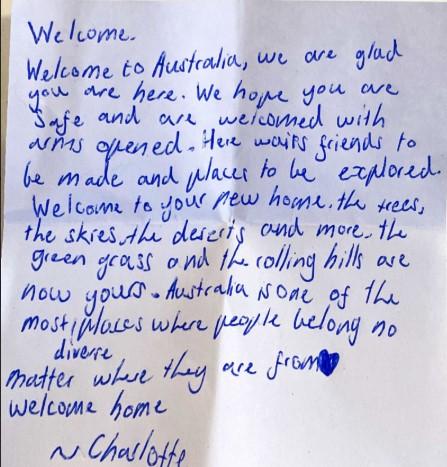 Welcome.
Welcome to Australia, we are glad
you are here. We hope you are
safe and are welcomed with
arms opened. Here waits friends to
be made and places to be explored.
Welcome to your new home. the trees,
the skies, the deserts and more. the
green grass and the rolling hills are
now yours. Australia is one of the
most places where people belong no
diverse
matter where they are from
Welcome home
~ Charlotte